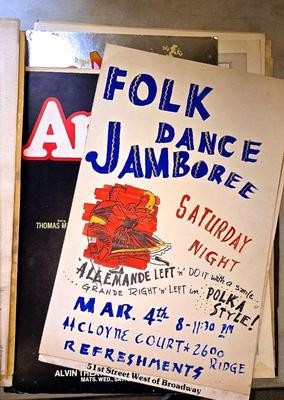 FOLK
DANCE
JAMBOREE
SATURDAY
NIGHT
ALLEMANDE LEFT 'n' DO IT with a smile...
GRANDE RIGHT 'n' LEFT in POLKA
STYLE!
MAR. 4th 8-11:30 PM
at CLOYNE COURT * 2600
RIDGE
REFRESHMENTS
51st Street West of Broadway
An
THOMAS M
ALVIN THE
MATS. WED., SAT